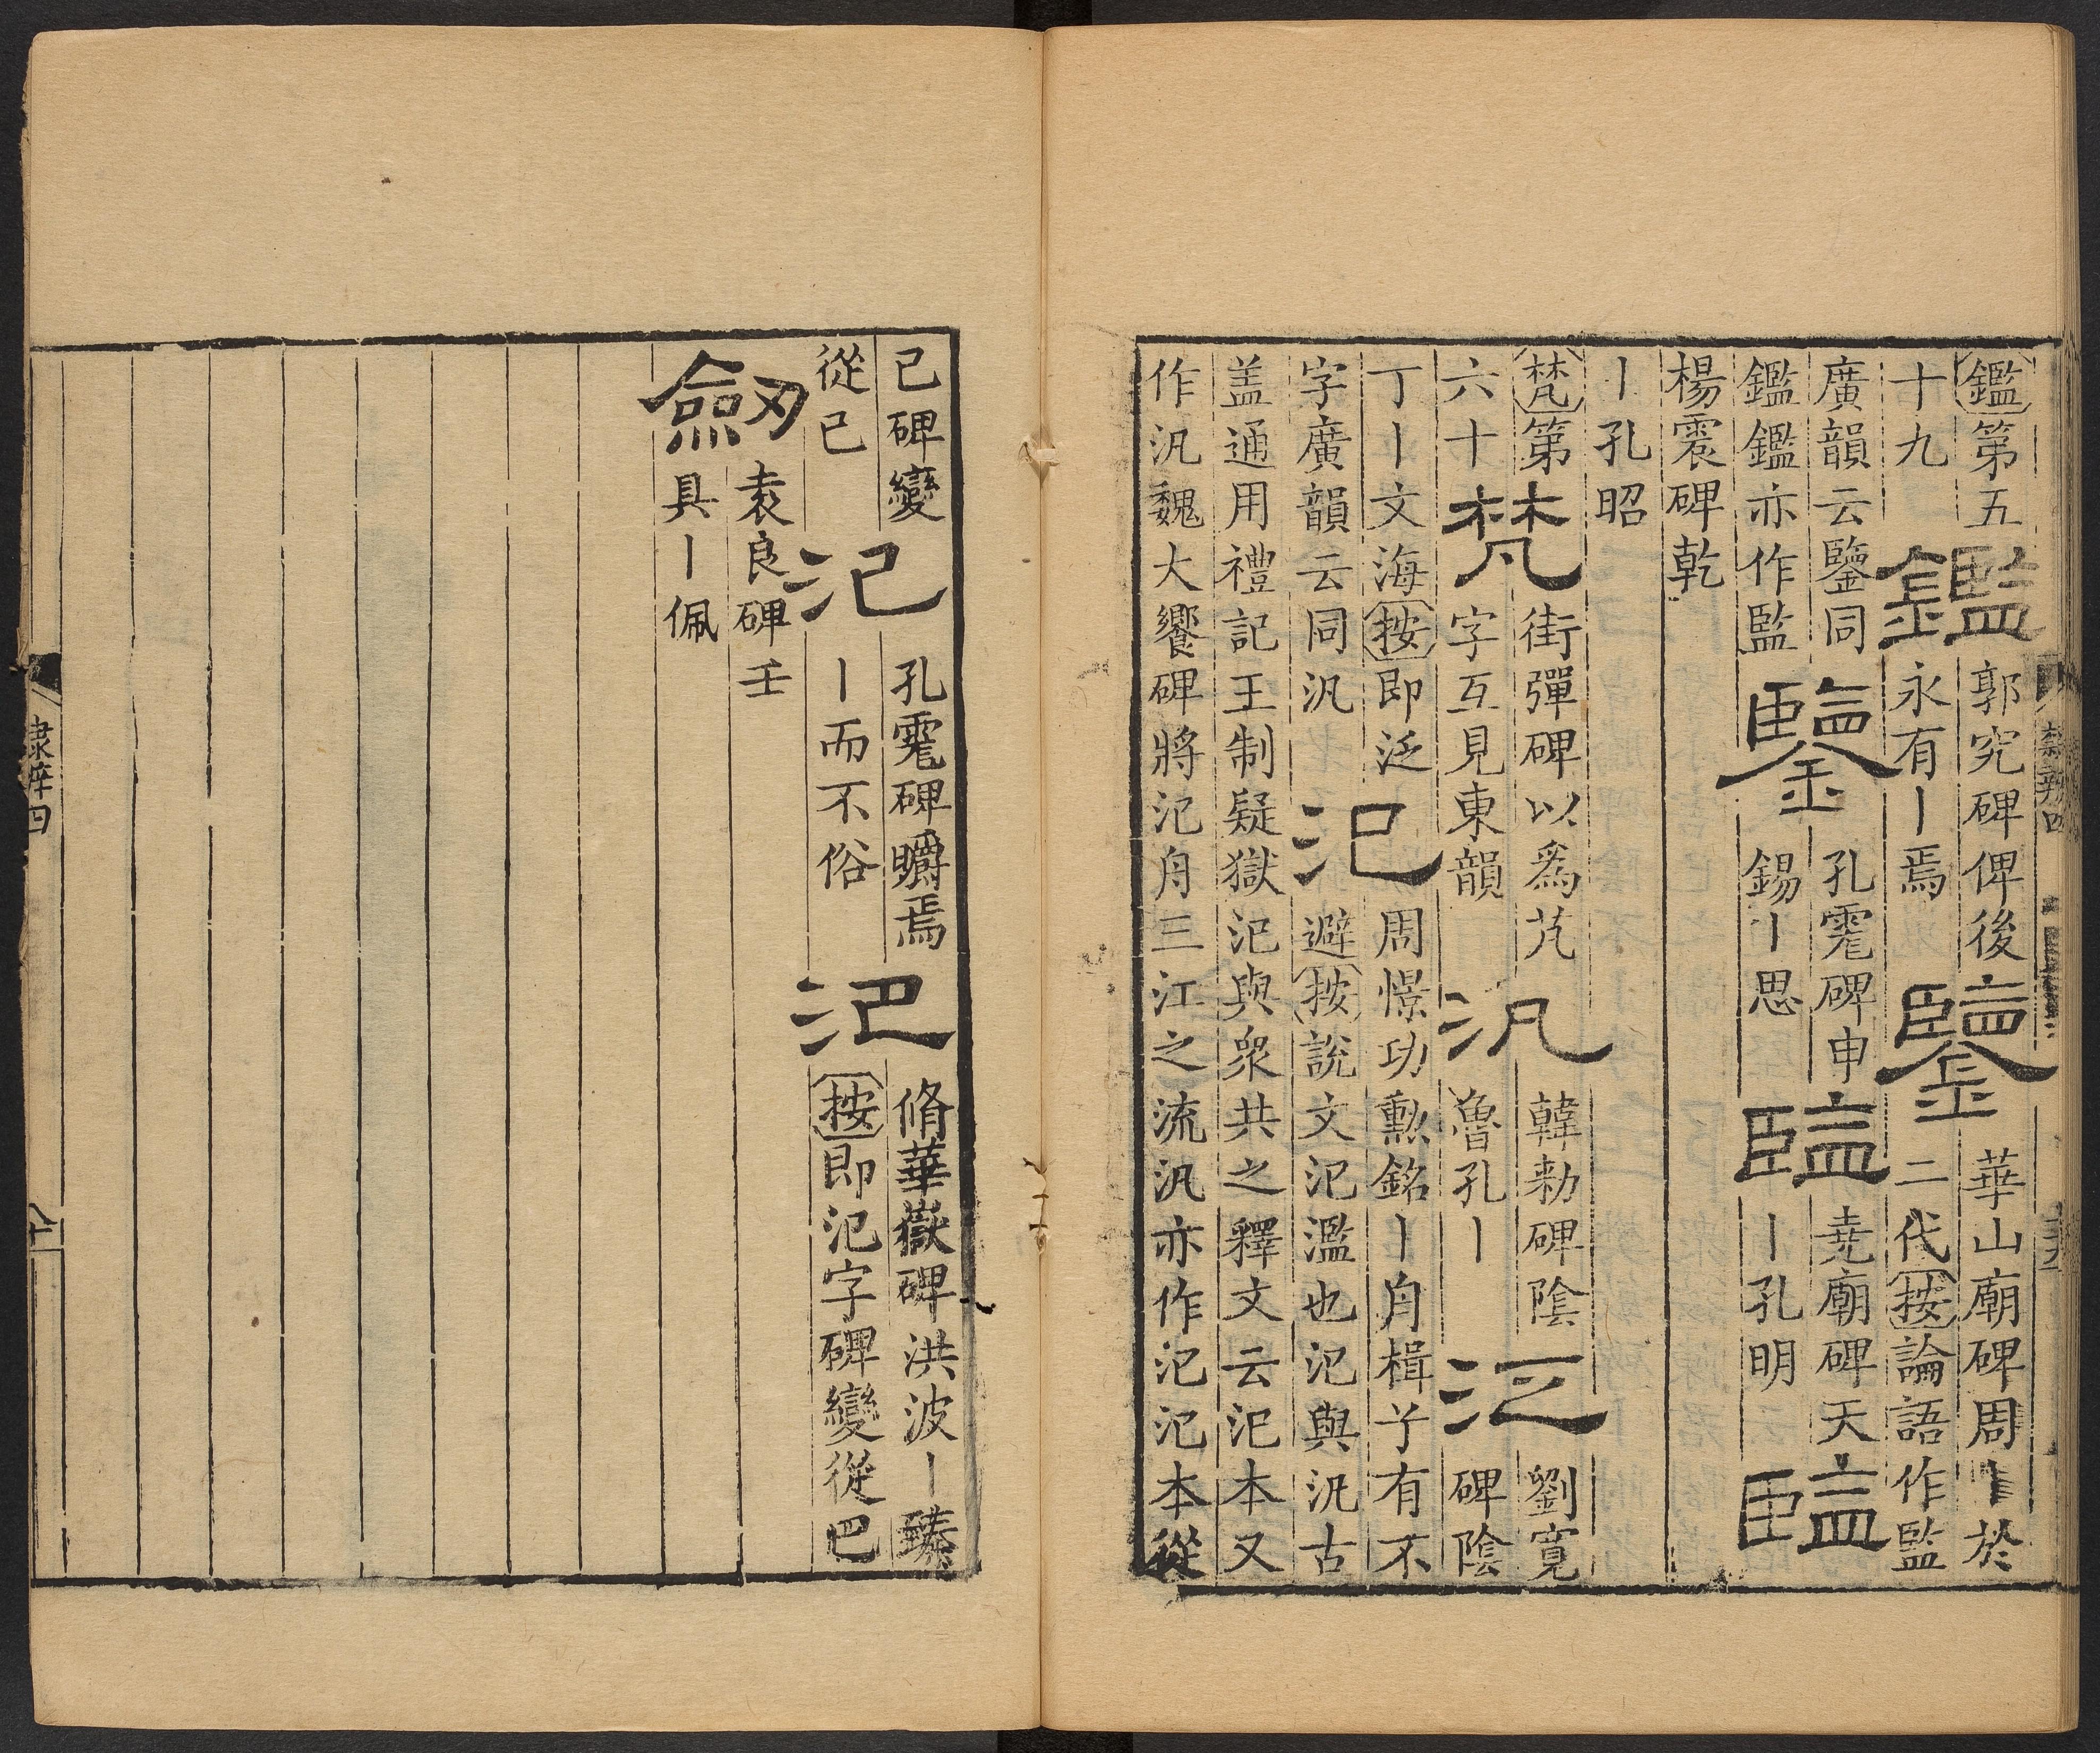 鑑第五
十九
鑑
郭究碑俾後
永有丨焉
鑒
華山廟碑周丨於
二代按論語作監
廣韻云鑒同
鑑鑑亦作監
鑒
孔霅碑申
錫丨思
監
堯廟碑天
丨孔明
監
楊震碑乾
丨孔昭
梵第
六十
梵
街彈碑以爲芃
字互見東韻
汎
韓勑碑陰
魯孔丨
泛
劉寬
碑陰
丁丨文海按即泛
字廣韻云同汎
氾
周憬功勲銘丨舟楫兮有不
避按說文氾濫也氾與汎古
盖通用禮記王制疑獄氾與衆共之釋文云氾本又
作汎魏大饗碑將氾舟三江之流汎亦作氾氾本從
㔾碑變
從巳
氾
孔霅碑皭焉
丨而不俗
汜
脩華嶽碑洪波丨臻
按即氾字碑變從巴
劒
袁良碑壬
具丨佩
隸辨四